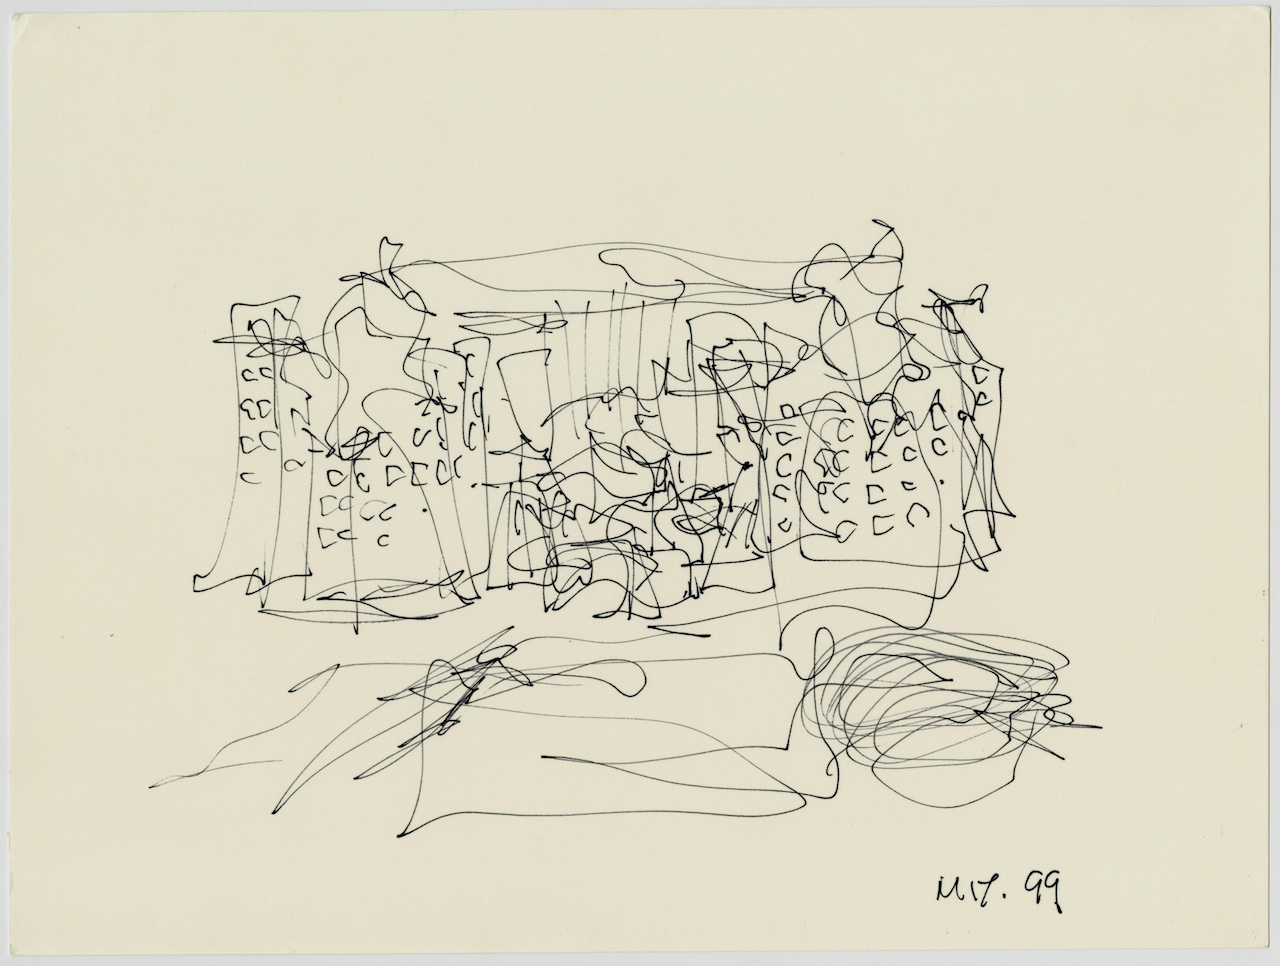 MIT. 99